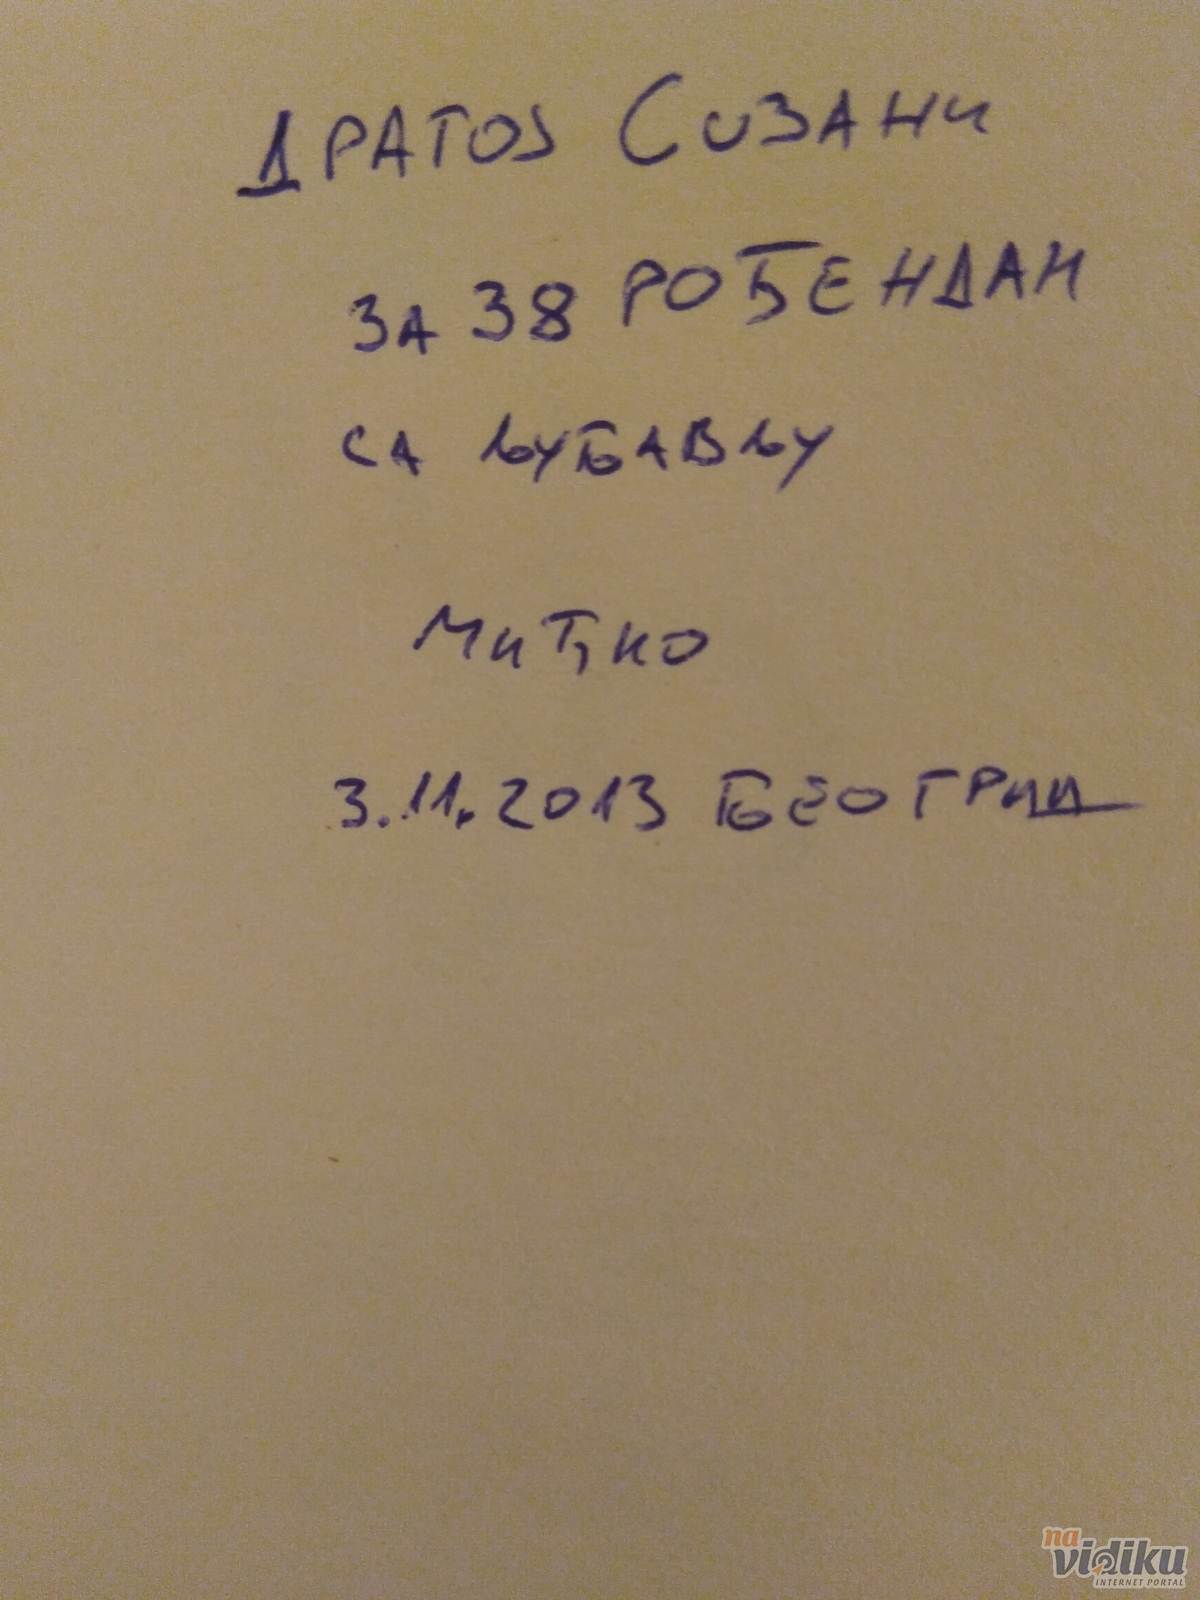 ДРАГОЈ СУЗАНИ
ЗА 38 РОЂЕНДАН
СА ЉУБАВЉУ
МИЋКО
3.11.2013 БЕОГРАД
na
vidiku
INTERNET PORTAL